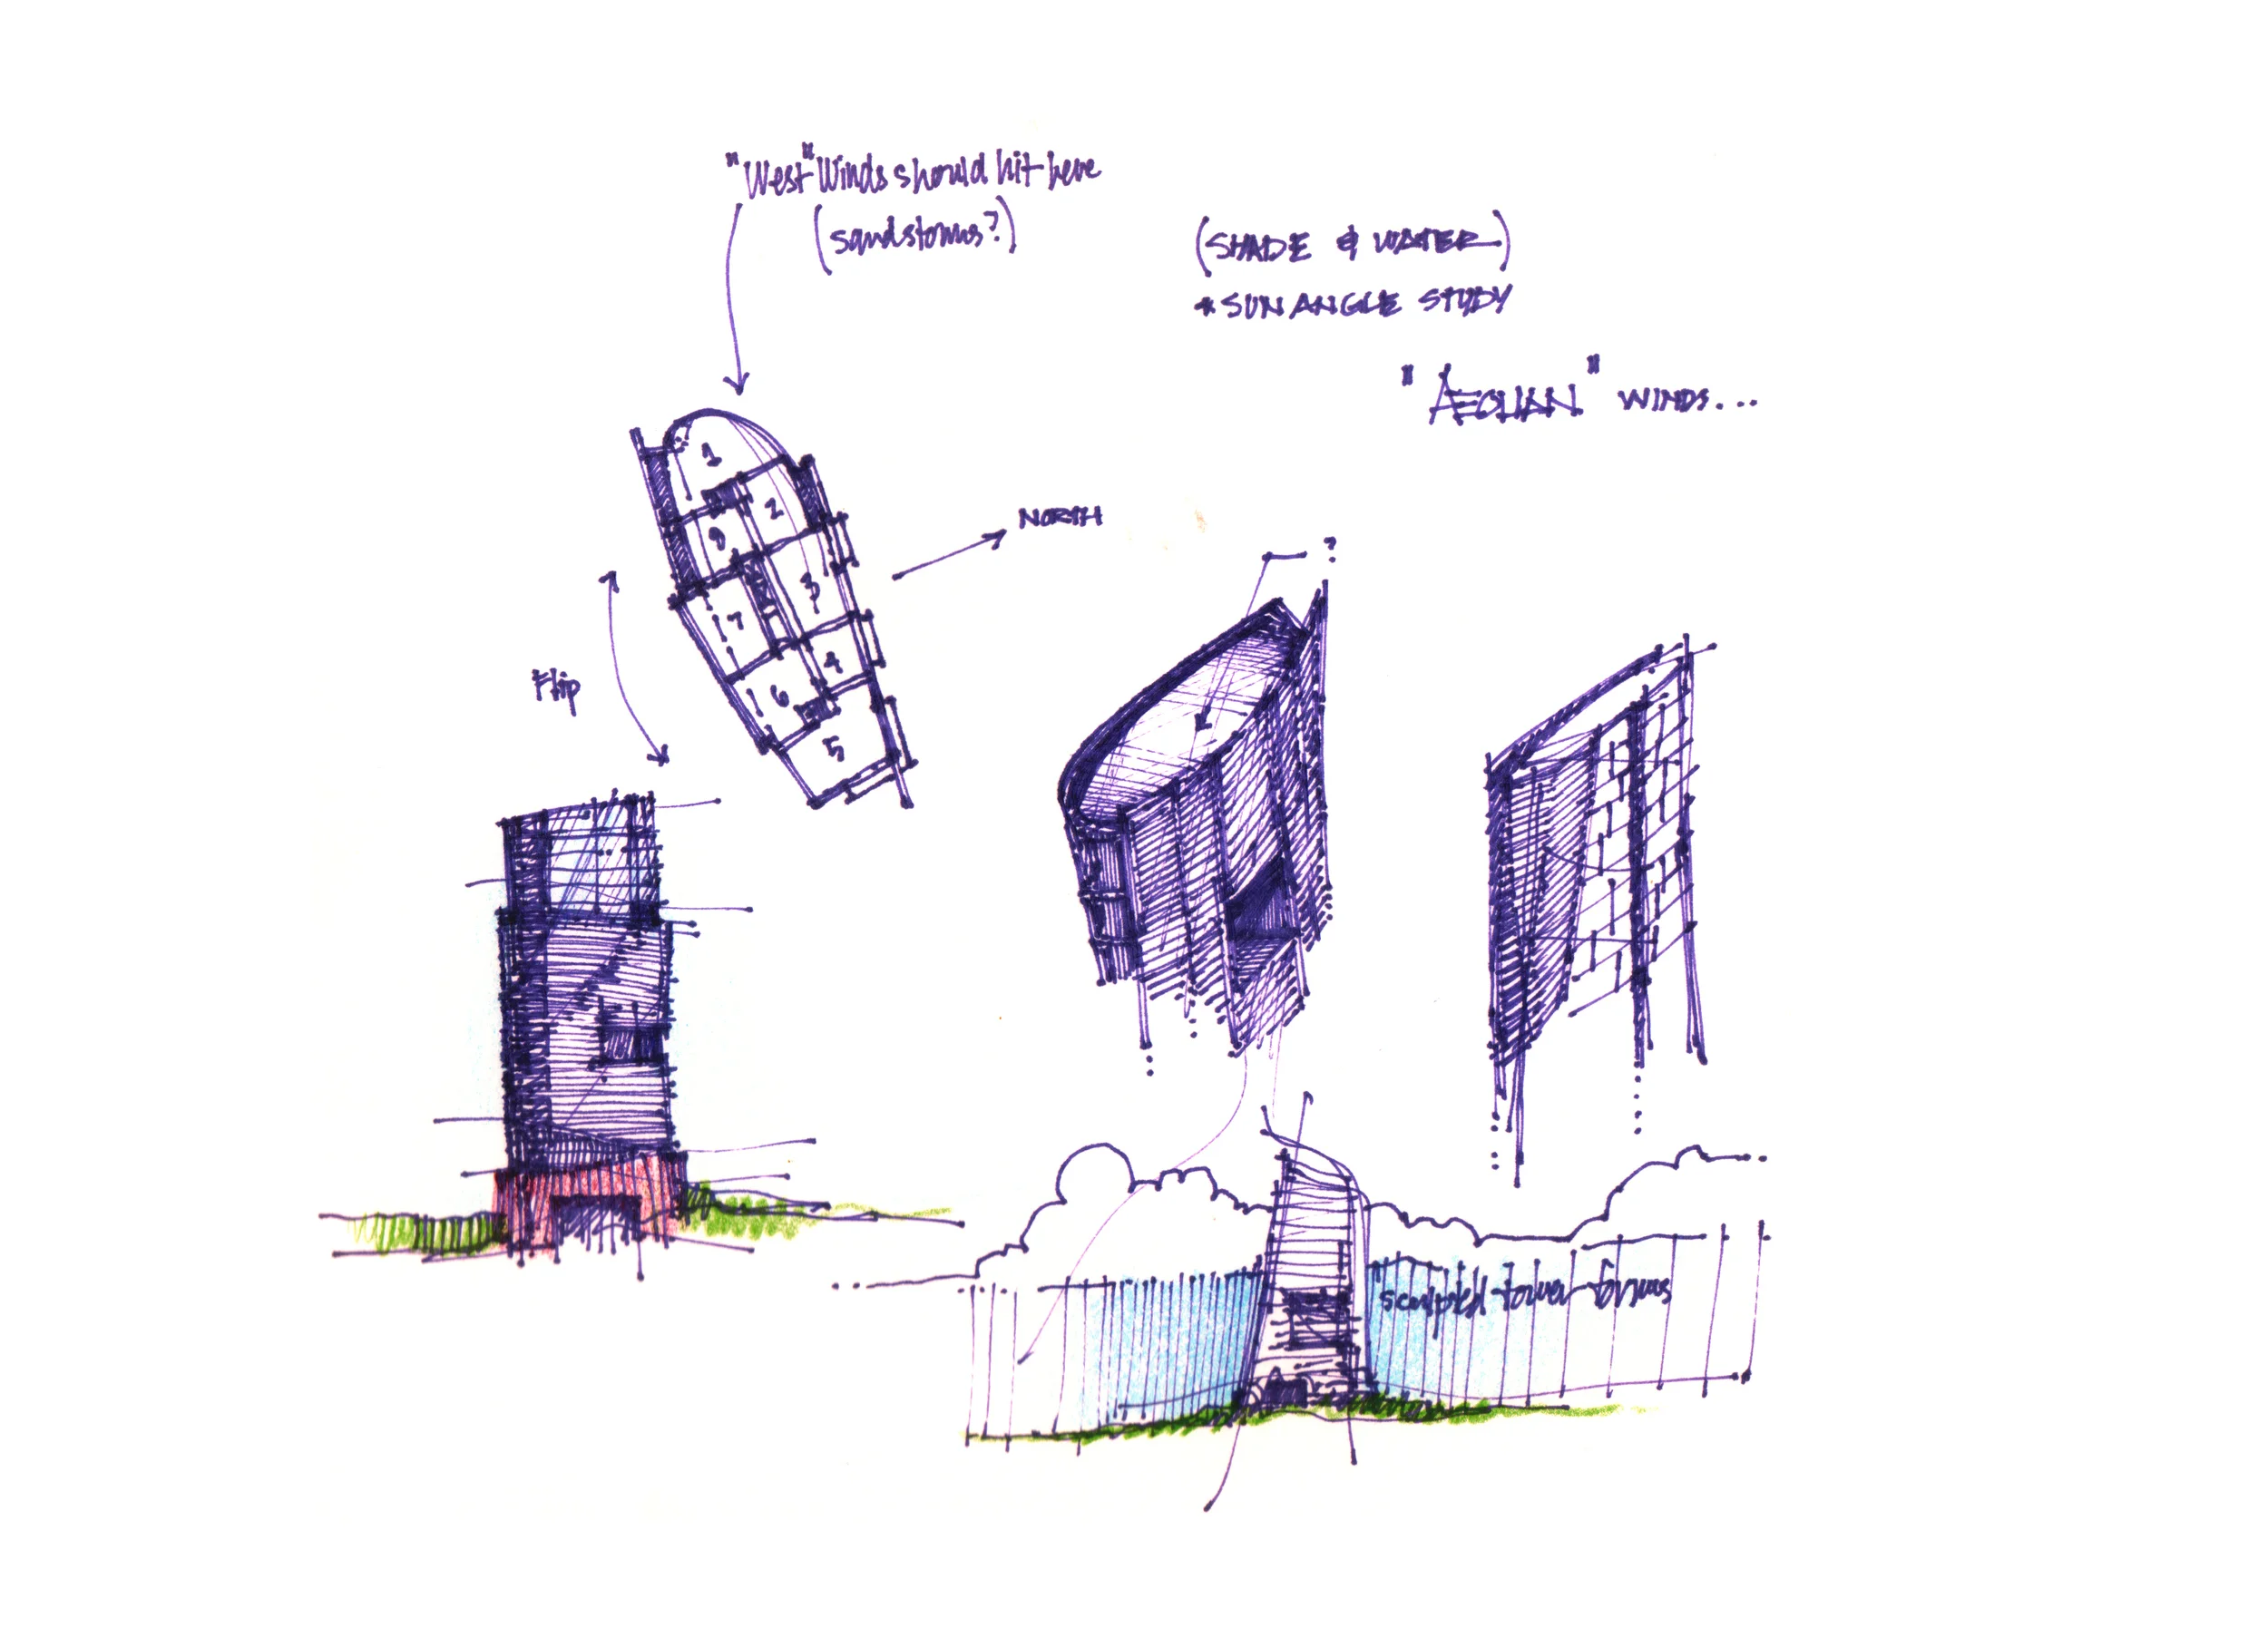 "West" Winds should hit here
(sandstorms?)
(SHADE & WATER)
* SUN ANGLE STUDY
"AEOLIAN" WINDS...
1
2
8
3
7
4
6
5
NORTH
Flip
?
sculpted tower forms